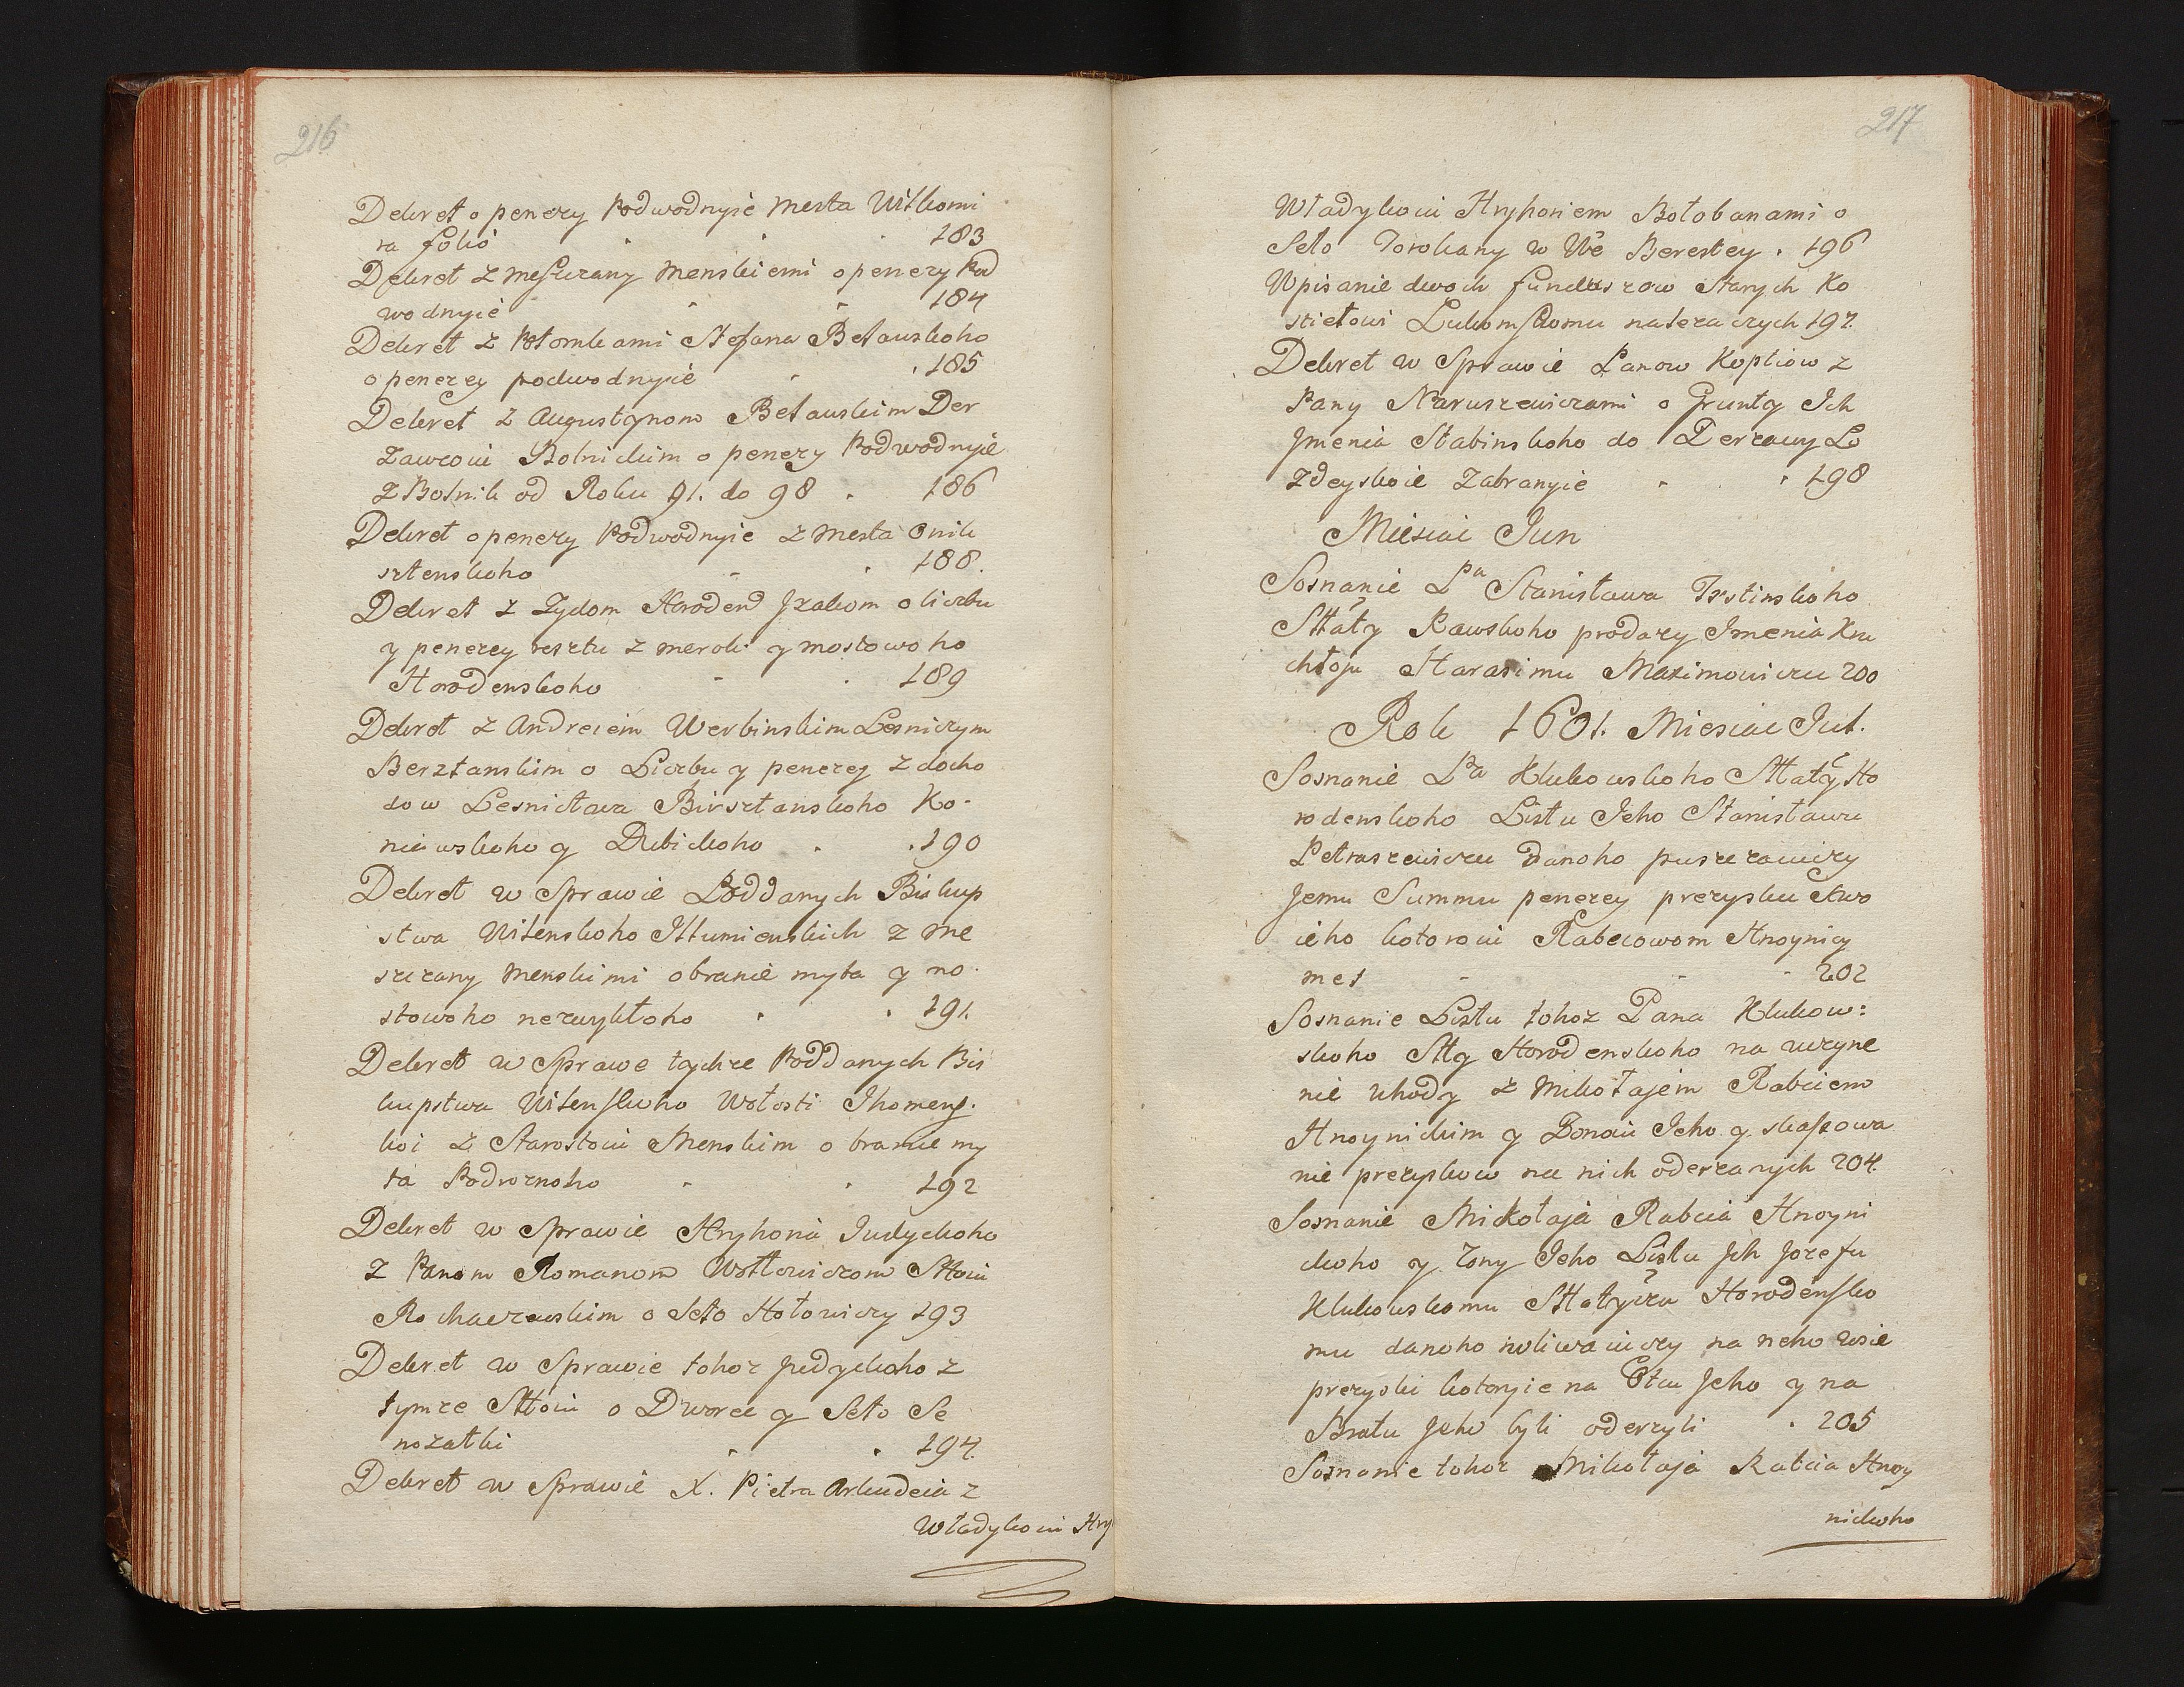 216
Dekret o penezy Podwodnyie Mesta Wilkomi
ra folio 183
Dekret z meszczany Menskiemi o penezy Pod
wodnyie 184
Dekret z Potomkami Stefana Bełauskoho
o penezy podwodnyie 185
Dekret z Augustynom Bełauskim Der
zawcoiu Bolnickim o penezy Podwodnyie
z Bolnik od Roku 91. do 98 186
Dekret o penezy Podwodnyie z Mesta Onik
sztenskoho 188.
Dekret z Zydom Horoden Jzakom o liczbu
y penezey resztu z merok y mostowoho
Horodenskoho 189
Dekret z Andreiem Werbinskim Lesniczym
Bersztanskim o Liczbu y penezey z docho
dow Lesnictwa Birsztanskoho Ko-
niawskoho y Dubickoho 190
Dekret w Sprawie Poddanych Biskup
stwa Wilenskoho Ihumienskich z Me
szczany Menskimi o branie myta y mo
stowoho nezwykłoho 191.
Dekret w Sprawe tychze Poddanych Bis
kupstwa Wilenskoho Wołosti Ihomens
koi z Starostoiu Menskim o branie my
ta Podroznoho 192
Dekret w Sprawie Hryhoria Judyckoho
z Panom Romanom Wołłowiczom Sttoiu
Rochaczewskim o Seło Hołowiczy 193
Dekret w Sprawie tohoz Judyckoho z
tymze Sttoiu o Dworec y Seło Se
nozatki 194.
Dekret w Sprawie X. Pietra Arkudeia z
Władykoiu Hry
217
Władykoiu Hryhoriem Bołobanami o
Seło Torokany w Wě Berestey. 196
Wpisanie dwoch funduszow Starych Ko
sciełowi Lukomskomu należaczych 197.
Dekret w Sprawie Panow Koptiow z
Pany Naruszewiczami o Grunty Ich
Jmenia Stabinskoho do Derzawy Lo
zdeyskoie Zabranyie 198
Miesiac Jun
Sosnanie Pa Stanisława Trstinskoho
Sttaty Rawskoho prodazy Jmenia Kru
chłoju Harasimu Maximowiczu 200
Rok 1601. Miesiac Jul.
Sosnanie Pa Klukowskoho Sttaty Ho
rodenskoho Listu Jeho Stanisławu
Petraszewiczu danoho puszczaiuczy
Jemu Summu penezey prezysku swo
ieho kotoroiu Rabcowom Hnoynicy
met 202
Sosnanie Listu tohoz Pana Klukow:
skoho Stty Horodenskoho na uczyne
nie uhody z Mikołajem Rabciem
Hnoynickim y Zonoiu Jeho y skassowa
nie prezyskow na nich oderzanych 204.
Sosnanie Mikołaja Rabcia Hnoyni
ckoho y Zony Jeho Listu Jch Jozefu
Klukowskomu Sttatyczu Horodensko
mu danoho wliwaiuczy na neho wsie
prezyski kotoryie na Otcu Jeho y na
Bratu Jeho byli oderzyli 205
Sosnanie tohoz Mikołaja Rabcia Hnoy
nickoho